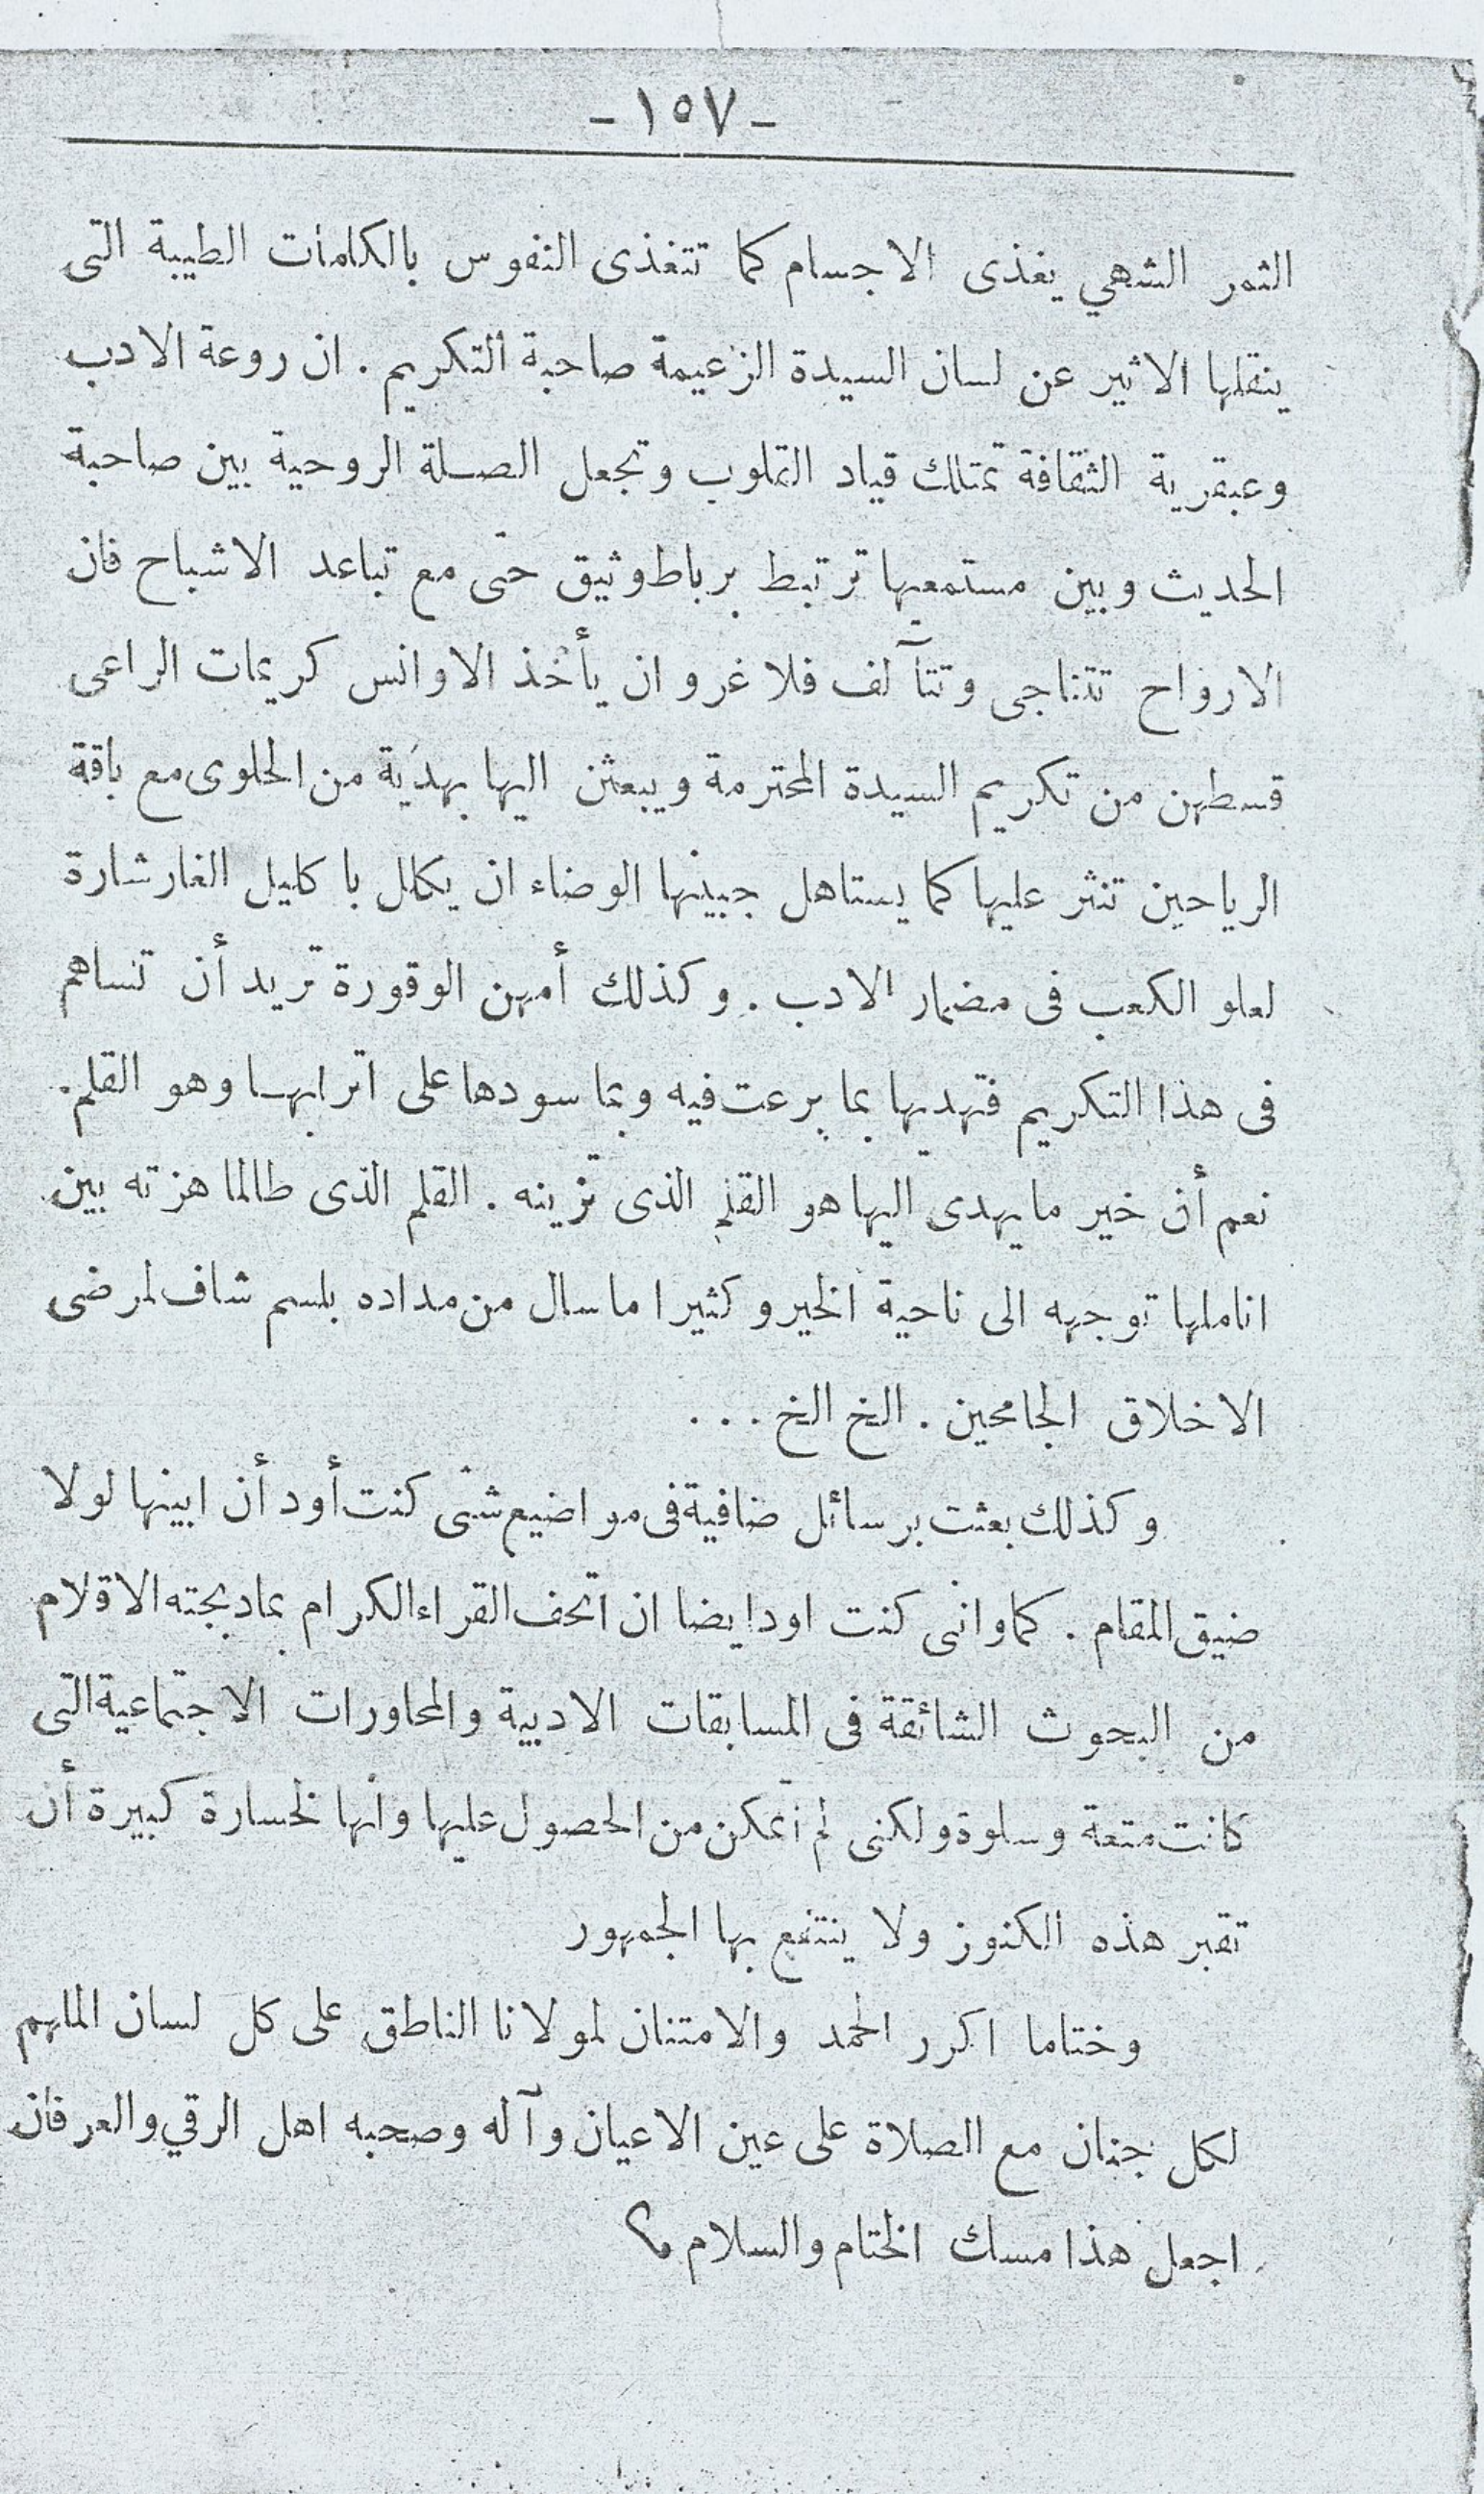 - ١٥٧ -
الثمر الشهي يغذى الاجسام كما تتغذى النفوس بالكلمات الطيبة التى
ينقلها الاثير عن لسان السيدة الزعيمة صاحبة التكريم . ان روعة الادب
وعبقرية الثقافة تمتلك قياد القلوب وتجعل الصلة الروحية بين صاحبة
الحديث وبين مستمعيها ترتبط برباط وثيق حتى مع تباعد الاشباح فان
الارواح تتناجى وتتآلف فلا غرو ان يأخذ الاوانس كريمات الراعى
قسطهن من تكريم السيدة المحترمة ويبعثن اليها بهدية من الحلوى مع باقة
الرياحين تنثر عليها كما يستاهل جبينها الوضاء ان يكلل باكليل الغار شارة
لعلو الكعب فى مضمار الادب . وكذلك أمهن الوقورة تريد أن تساهم
فى هذا التكريم فتهديها بما برعت فيه وبما سودها على اترابها وهو القلم .
نعم أن خير ما يهدى اليها هو القلم الذى تزينه . القلم الذى طالما هزته بين
اناملها توجهه الى ناحية الخير وكثيرا ما سال من مداده بلسم شاف لمرضى
الاخلاق الجامحين . الخ الخ . . .
وكذلك بعثت برسائل ضافية فى مواضيع شتى كنت أود أن ابينها لولا
ضيق المقام . كما وانى كنت اود ايضا ان اتحف القراء الكرام بما دبجته الاقلام
من البحوث الشائقة فى المسابقات الادبية والمحاورات الاجتماعية التى
كانت متعة وسلوة ولكنى لم اتمكن من الحصول عليها وانها لخسارة كبيرة أن
تقبر هذه الكنوز ولا ينتفع بها الجمهور
وختاما اكرر الحمد والامتنان لمولانا الناطق على كل لسان الملهم
لكل جنان مع الصلاة على عين الاعيان وآله وصحبه اهل الرقي والعرفان
اجعل هذا مسك الختام والسلام